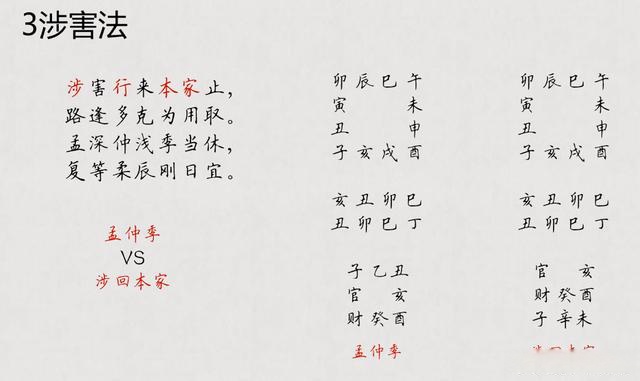 3涉害法
涉害行来本家止，
路逢多克为用取。
孟深仲浅季当休，
复等柔辰刚日宜。
孟仲季
VS
涉回本家
卯辰巳午
寅 未
丑 申
子亥戌酉
亥丑卯巳
丑卯巳丁
子乙丑
官 亥
财癸酉
孟仲季
卯辰巳午
寅 未
丑 申
子亥戌酉
亥丑卯巳
丑卯巳丁
官 亥
财癸酉
子辛未